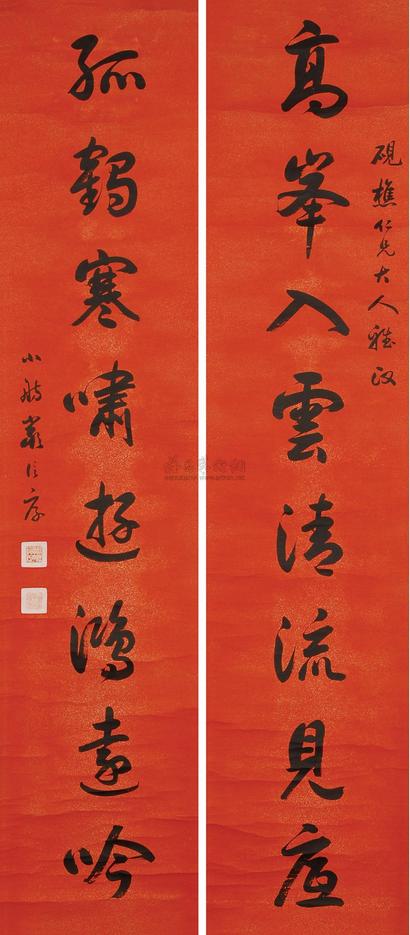 硯樵仁兄大人雅政
高峯入雲清流見底
孤鶴寒嘯遊鴻遠吟
小舫嚴信厚